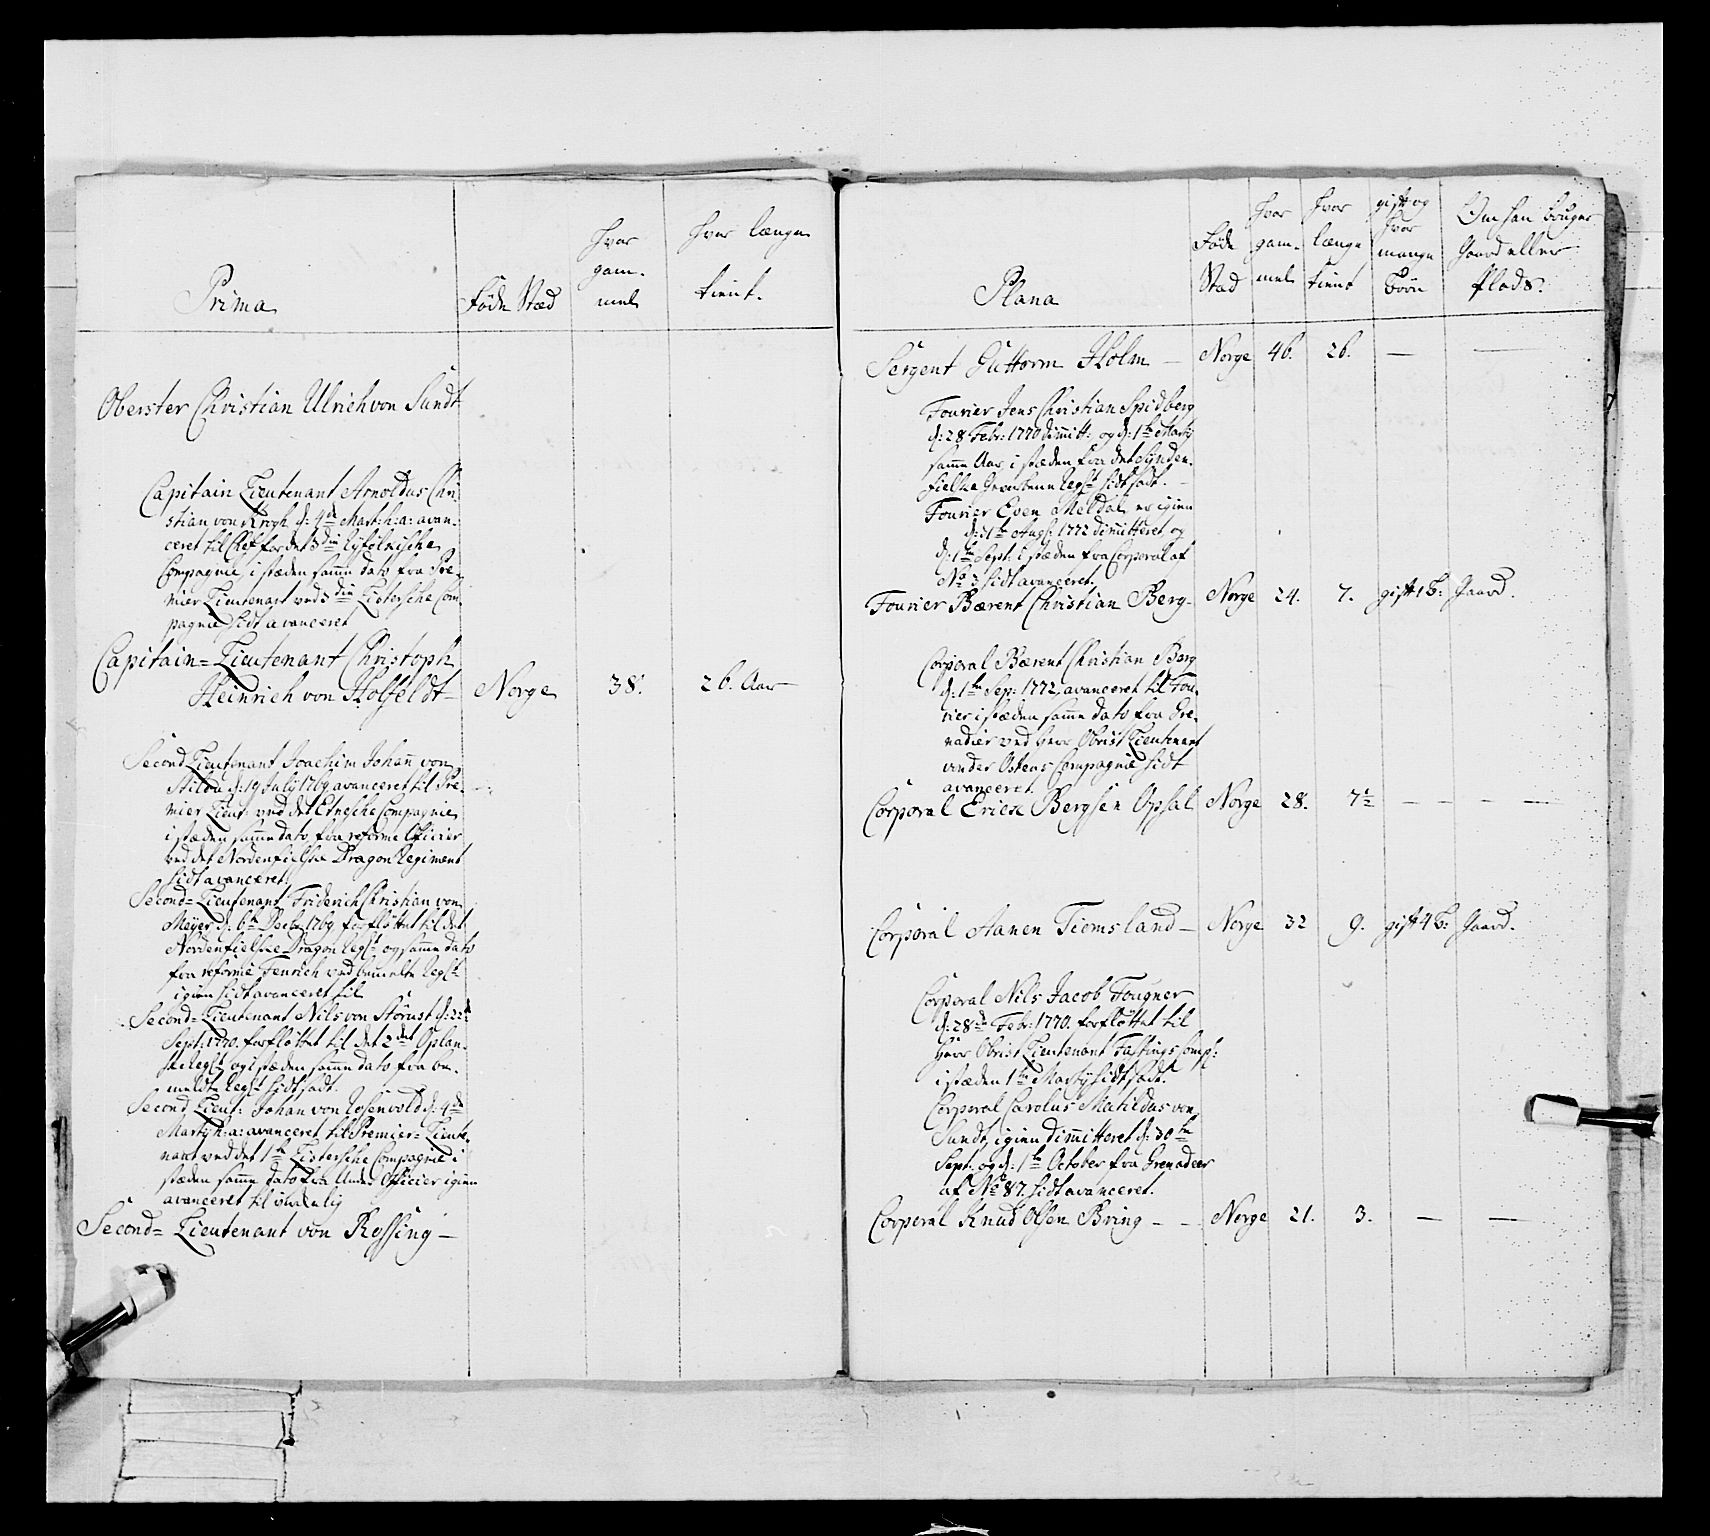 Prima
Føde Stæd
hvor
gam-
mel
hvor længe
tient.
Oberster Christian Ulrich von Sundt
Capitain Lieutenant Arnoldus Chri
stian von Krogh d: 4de Mart: h: a: avan-
ceret til Chef for det 3die Ryfølkische
Compagnie, i stæden samme dato fra Pre-
mier Lieutenant ved 3die Listersche Com-
pagnie hidt avanceret
Capitain=Lieutenant Christoph
Heinrich von Holfeldt— Norge 38. 26. Aar—
Second Lieutenant Joachim Johan von
d: 19 July 1769 avanceret til Pre-
mier Lieut: ved det Etnesche Compagnie
i stæden samme dato fra reforme Officier
ved det Nordenfielske Dragon Regiment
hidt avanceret.
Second=Lieutenant Friderich Christian von
Meyer d: 6te Decbr 1769 forfløttet til det
Nordenfielske Dragon Regt. og samme dato
fra reforme Fenrich ved bemelte Regt.
igien hidt avanceret til
Second=Lieutenant Nils von Storust d: 22de
Sept: 1770. forfløttet til det 2det Oplan-
ske Regt. og i stæden samme dato fra be-
meldte Regt. hidt sadt.
Second Lieut: Johan von Rosenvold d: 4de
Marty h: a: avanceret til Premier=Lieute-
nant ved det 1te Listersche Compagnie i
stæden samme dato fra Under Officier igien
avanceret til
Second=Lieutenant von Ressing—
Plana
Føde
Stad
hvor
gam-
mel
hvor
længe
tient
gift og
hvor
mange
Børn
Om han bruger
Gaard eller
Plads.
Sergent Guttorm Holm — Norge 46. 26. — —
Fourier Jens Christian Spidberg
d: 28 Febr: 1770 dimitt: og d: 1te Marty
samme Aar, i stæden fra det Synden-
fielske Geworbene Regt. hidt sadt.
Fourier Even Meldal, er igien
d: 31te Augs: 1772 dimitteret, og
d: 1te Sept: i stæden fra Corporal af
No 3 hidt avanceret.
Fourier Bærent Christian Berg- Norge 24. 7. gift 1 B: Gaard.
Corporal Bærent Christian Berg
d: 1te Sep: 1772, avanceret til Fou-
rier i stæden samme dato fra Gre-
nadier ved Herr Obrist Lieutenant
von der Ostens Compagnie hidt
avanceret.
Corporal Erick Bergsen Opsal Norge 28. 7½ — — — —
Corporal Aanen Tiomsland— Norge 32 9. gift 4 B: Gaard.
Corporal Nils Jacob Fougner
d: 28de Febr: 1770. forfløttet til
Herr Obrist Lieutenant Fastings Comp:
i stæden 1te Marty hidt sadt.
Corporal Carolus Matildas von
Sundt, igien dimitteret d: 30te
Sept: og d: 1te October fra Grenadeer
af No 87. hidt avanceret.
Corporal Knud Olsen Bring — — Norge 21. 3. — —